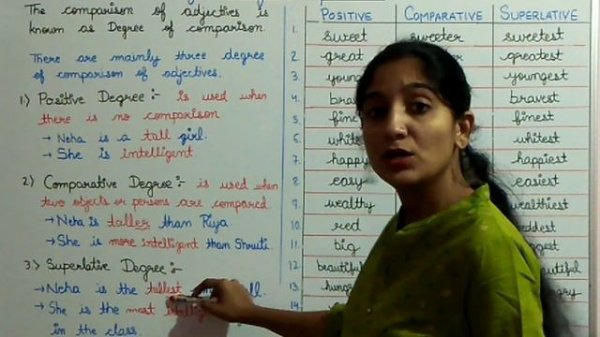 The comparison of adjectives is
known as Degree of comparison.
There are mainly three degree
of comparison of adjectives.
1.) Positive Degree :- is used when
there is no comparison
→ Neha is a tall girl.
→ She is intelligent
2) Comparative Degree :- is used when
two objects or persons are compared
→ Neha is taller than Riya
→ She is more intelligent than Shruti.
3.) Superlative Degree :-
→ Neha is the tallest all.
→ She is the most
in the class.
POSITIVE COMPARATIVE SUPERLATIVE
1. sweet sweeter sweetest
2. great greatest
3. young youngest
4. bravest
5. finest
6. white whitest
7. happy happiest
8. easy easiest
9. wealthy
10. red
11. big
12. beautiful
13.
14.